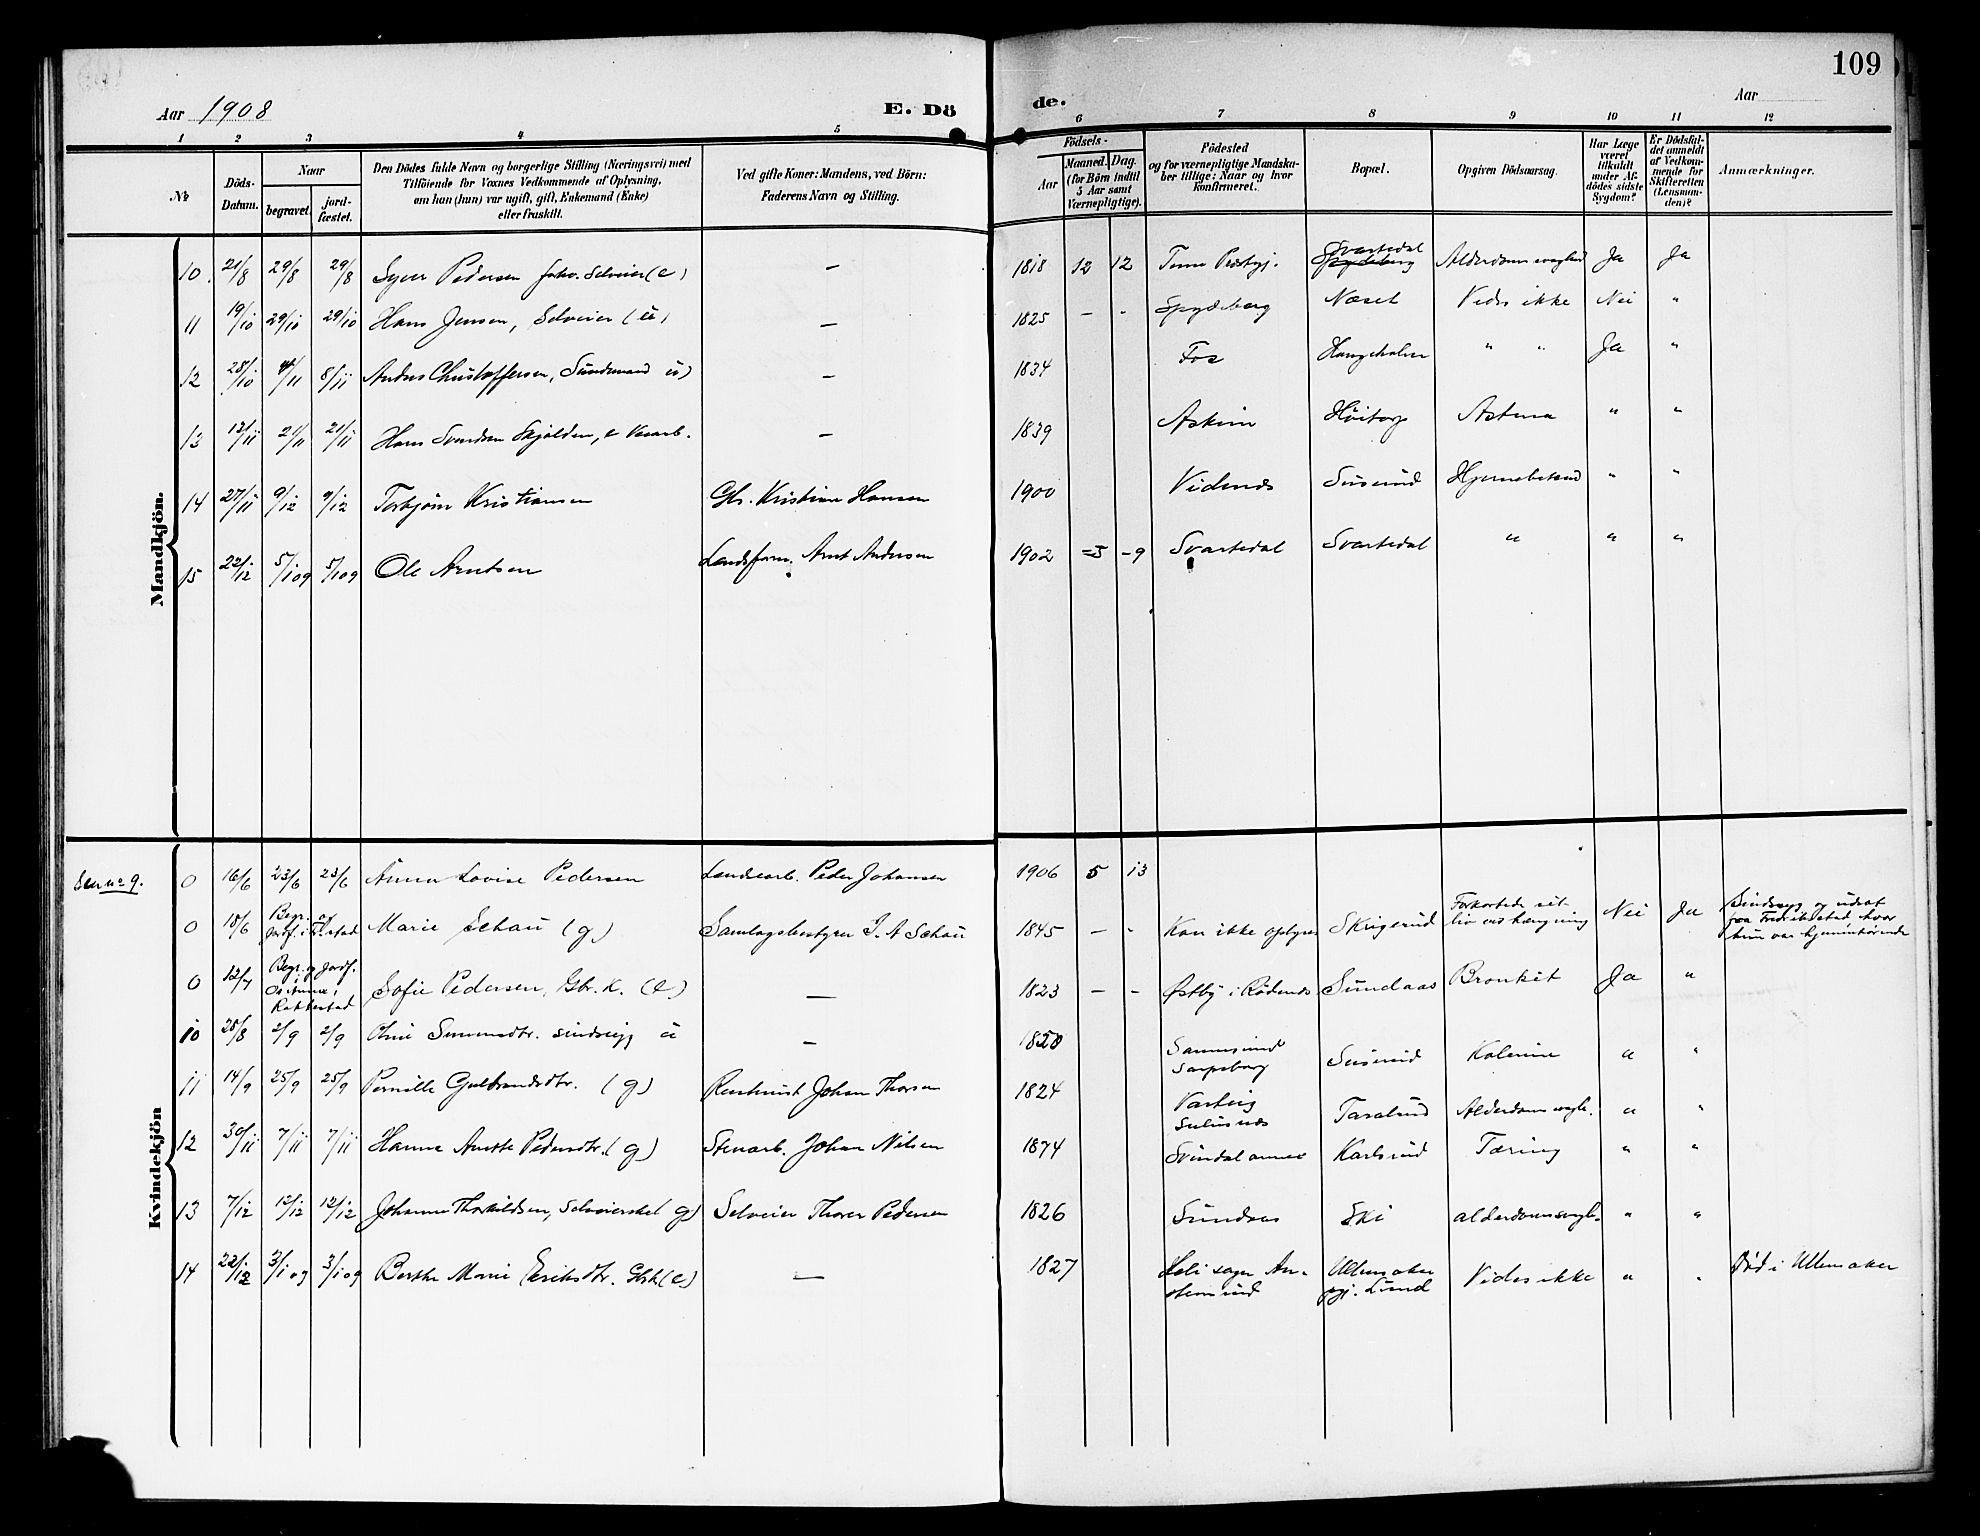 109
Aar 1908
E. Dö
de.
Aar
1 2 3 4 5
6 7 8 9 10 11 12
№
Döds-Datum.
Naar
begravet.
jord-fæstet.
Den Dödes fulde Navn og borgerlige Stilling (Næringsvei) med
Tilföiende for Voxnes Vedkommende af Oplysning,
om han (hun) var ugift, gift, Enkemand (Enke)
eller fraskilt.
Ved gifte Koner: Mandens, ved Börn:
Faderens Navn og Stilling.
Födsels-
Aar
Maaned. Dag.
(for Börn indtil
5 Aar samt
Værnepligtige).
Födested
og for værnepligtige Mandska-
ber tillige: Naar og hvor
konfirmeret.
Bopæl.
Opgiven Dödsaarsag.
Har Læge
været
tilkaldt
under Af-
dödes sidste
Sygdom?
Er Dödsfal-
det anmeldt
af Vedkom-
mende for
Skifteretten
(Lensman-
den)?
Anmærkninger.
Mandkjön.
10 21/8 29/8 29/8 Syver Pedersen forhv. Selveier (e) — 1818 12 12 Svartedal Spydeberg Ja Ja
11 19/10 29/10 29/10 Hans Jensen, Selveier (u) — 1825 - - Spydeberg Næset Vides ikke Nei "
12 28/10 8/11 Christoffersen, — 1834 Fos " " Ja "
13 13/11 21/11 21/11 Hans Svendsen Skjolden, e — 1839 Askim Høitorp Astma " "
14 27/11 9/12 9/12 Torbjørn Kristiansen Gbr. Kristian Hansen 1900 Vidnes Suserud Hjernebetænd " "
15 22/12 5/1 09 5/1 09 Ole Arntsen Arnt Andersen 1902 -5 -9 Svartedal Svartedal " " "
Kvindekjön
Se no 9. 0 16/6 23/6 23/6 Anna Lovise Pedersen Landearb. Peder Johansen 1906 5 13
0 18/6 Begr. og Jordf. i Fr.stad Marie Schau (g) Samlagsbestyrer J. A Schau 1845 - - Kan ikke oplyses Skrigerud Forkortede sit liv ved hængning Nei Ja Sindssyg og udsat fra Fredrikstad hvor hun var hjemmehørende
0 12/7 Begr. og Jordf. i Os Annex i Rakkestad Sofie Pedersen, Gbr. k. (e.) — 1823 - - Østby i Rødenes Sundaas Bronkit Ja "
10 28/8 2/9 2/9 sindssyg u — Sannesund Sarpsborg Suserud Kolerine " "
11 14/9 25/9 25/9 Pernille Gulbrandsdtr. (g) Johan Thorsen 1824 Varteig Taralrud Alderdomssvagh. " "
12 30/11 7/11 7/11 Hanna Anette Pedersdtr. (g) Stenarb. Johan Nilsen 1874 Svindal annex Karlsrud Tæring " "
13 7/12 12/12 12/12 Johanne Thorkildsen, (g) Selveier Thorer Pedersen 1826 Sundaas Ski alderdomssvagh. " "
14 22/12 3/1 09 3/1 09 Berthe Marie Eriksdtr. (e) — 1827 Heli sogn Ullensaker pgj. Lund Vides ikke " " Død i Ullensaker